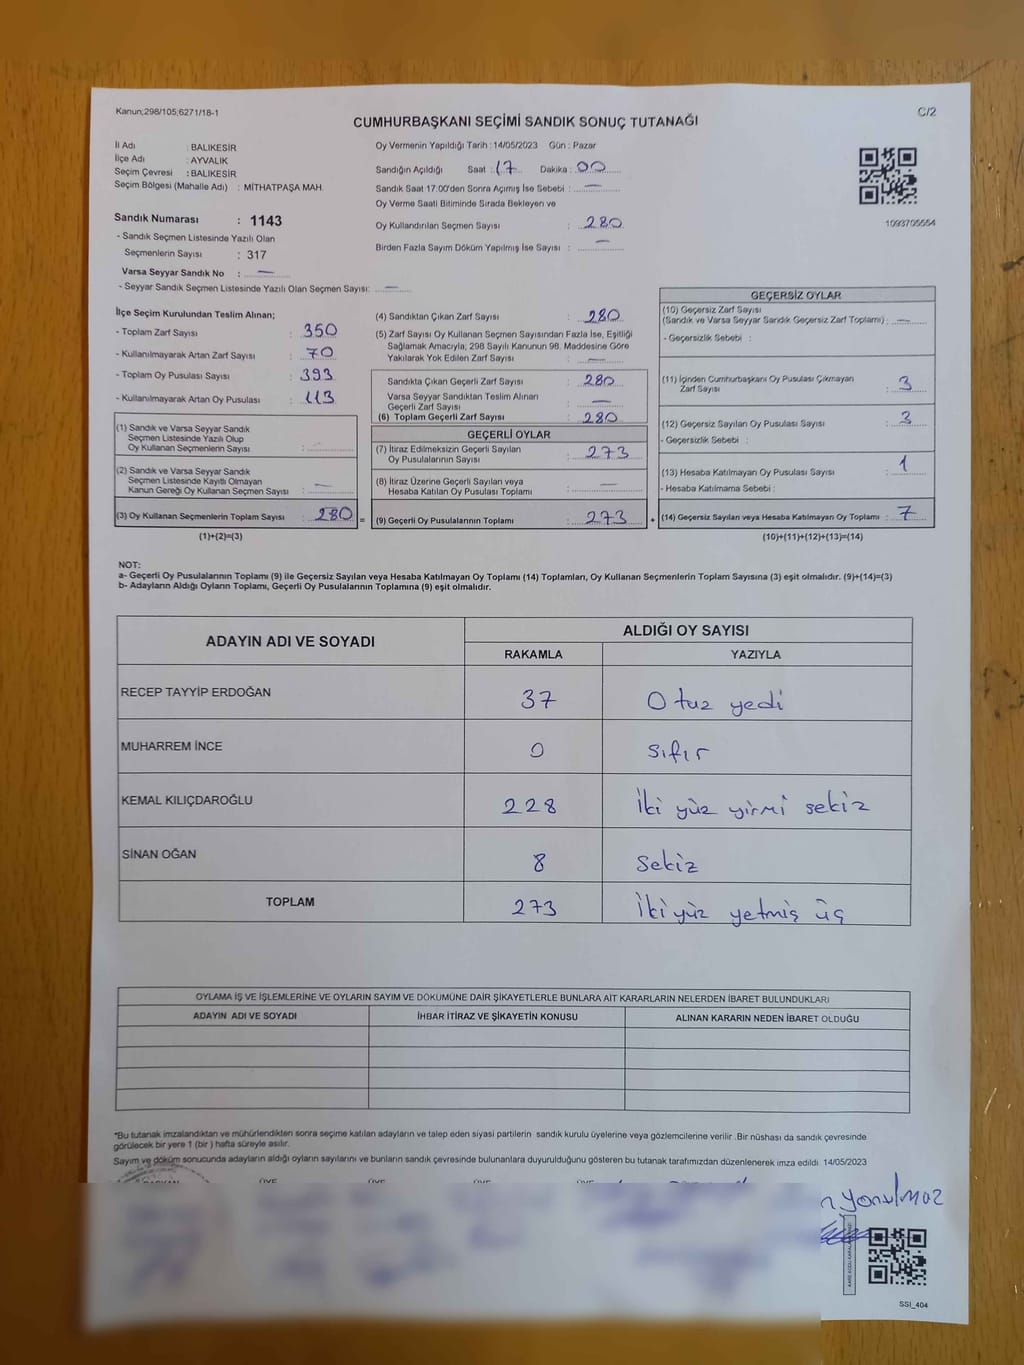 Kanun;298/105;6271/18-1
C/2
CUMHURBAŞKANI SEÇİMİ SANDIK SONUÇ TUTANAĞI
İl Adı : BALIKESİR
İlçe Adı : AYVALIK
Seçim Çevresi : BALIKESİR
Seçim Bölgesi (Mahalle Adı) : MİTHATPAŞA MAH.
Sandık Numarası : 1143
- Sandık Seçmen Listesinde Yazılı Olan
Seçmenlerin Sayısı : 317
Varsa Seyyar Sandık No : —
- Seyyar Sandık Seçmen Listesinde Yazılı Olan Seçmen Sayısı: —
Oy Vermenin Yapıldığı Tarih : 14/05/2023 Gün : Pazar
Sandığın Açıldığı Saat : 17 Dakika : 00
Sandık Saat 17.00'den Sonra Açımış İse Sebebi : —
Oy Verme Saati Bitiminde Sırada Bekleyen ve
Oy Kullandırılan Seçmen Sayısı : 280
Birden Fazla Sayım Döküm Yapılmış İse Sayısı : —
1093705554
İlçe Seçim Kurulundan Teslim Alınan;
- Toplam Zarf Sayısı : 350
- Kullanılmayarak Artan Zarf Sayısı : 70
- Toplam Oy Pusulası Sayısı : 393
- Kullanılmayarak Artan Oy Pusulası : 113
(1) Sandık ve Varsa Seyyar Sandık
Seçmen Listesinde Yazılı Olup
Oy Kullanan Seçmenlerin Sayısı :
(2) Sandık ve Varsa Seyyar Sandık
Seçmen Listesinde Kayıtlı Olmayan
Kanun Gereği Oy Kullanan Seçmen Sayısı : —
(3) Oy Kullanan Seçmenlerin Toplam Sayısı : 280 =
(1)+(2)=(3)
(4) Sandıktan Çıkan Zarf Sayısı : 280
(5) Zarf Sayısı Oy Kullanan Seçmen Sayısından Fazla İse, Eşitliği
Sağlamak Amacıyla; 298 Sayılı Kanunun 98. Maddesine Göre
Yakılarak Yok Edilen Zarf Sayısı : —
Sandıkta Çıkan Geçerli Zarf Sayısı : 280
Varsa Seyyar Sandıktan Teslim Alınan
Geçerli Zarf Sayısı : —
(6) Toplam Geçerli Zarf Sayısı : 280
GEÇERLİ OYLAR
(7) İtiraz Edilmeksizin Geçerli Sayılan
Oy Pusulalarının Sayısı : 273
(8) İtiraz Üzerine Geçerli Sayılan veya
Hesaba Katılan Oy Pusulası Toplamı : —
(9) Geçerli Oy Pusulalarının Toplamı : 273 +
GEÇERSİZ OYLAR
(10) Geçersiz Zarf Sayısı
(Sandık ve Varsa Seyyar Sandık Geçersiz Zarf Toplamı) : —
- Geçersizlik Sebebi :
(11) İçinden Cumhurbaşkanı Oy Pusulası Çıkmayan
Zarf Sayısı : 3
(12) Geçersiz Sayılan Oy Pusulası Sayısı : 3
- Geçersizlik Sebebi :
(13) Hesaba Katılmayan Oy Pusulası Sayısı : 1
- Hesaba Katılmama Sebebi :
(14) Geçersiz Sayılan veya Hesaba Katılmayan Oy Toplamı : 7
(10)+(11)+(12)+(13)=(14)
NOT:
a- Geçerli Oy Pusulalarının Toplamı (9) ile Geçersiz Sayılan veya Hesaba Katılmayan Oy Toplamı (14) Toplamları, Oy Kullanan Seçmenlerin Toplam Sayısına (3) eşit olmalıdır. (9)+(14)=(3)
b- Adayların Aldığı Oyların Toplamı, Geçerli Oy Pusulalarının Toplamına (9) eşit olmalıdır.
ADAYIN ADI VE SOYADI
ALDIĞI OY SAYISI
RAKAMLA YAZIYLA
RECEP TAYYİP ERDOĞAN 37 Otuz yedi
MUHARREM İNCE 0 sıfır
KEMAL KILIÇDAROĞLU 228 İki yüz yirmi sekiz
SİNAN OĞAN 8 Sekiz
TOPLAM 273 İki yüz yetmiş üç
OYLAMA İŞ VE İŞLEMLERİNE VE OYLARIN SAYIM VE DÖKÜMÜNE DAİR ŞİKAYETLERLE BUNLARA AİT KARARLARIN NELERDEN İBARET BULUNDUKLARI
ADAYIN ADI VE SOYADI İHBAR İTİRAZ VE ŞİKAYETİN KONUSU ALINAN KARARIN NEDEN İBARET OLDUĞU
*Bu tutanak imzalandıktan ve mühürlendikten sonra seçime katılan adayların ve talep eden siyasi partilerin sandık kurulu üyelerine veya gözlemcilerine verilir .Bir nüshası da sandık çevresinde
görülecek bir yere 1 (bir ) hafta süreyle asılır.
Sayım ve döküm sonucunda adayların aldığı oyların sayılarını ve bunların sandık çevresinde bulunanlara duyurulduğunu gösteren bu tutanak tarafımızdan düzenlenerek imza edildi 14/05/2023
ÜYE ÜYE ÜYE ÜYE
Yorulmaz
SSI_404